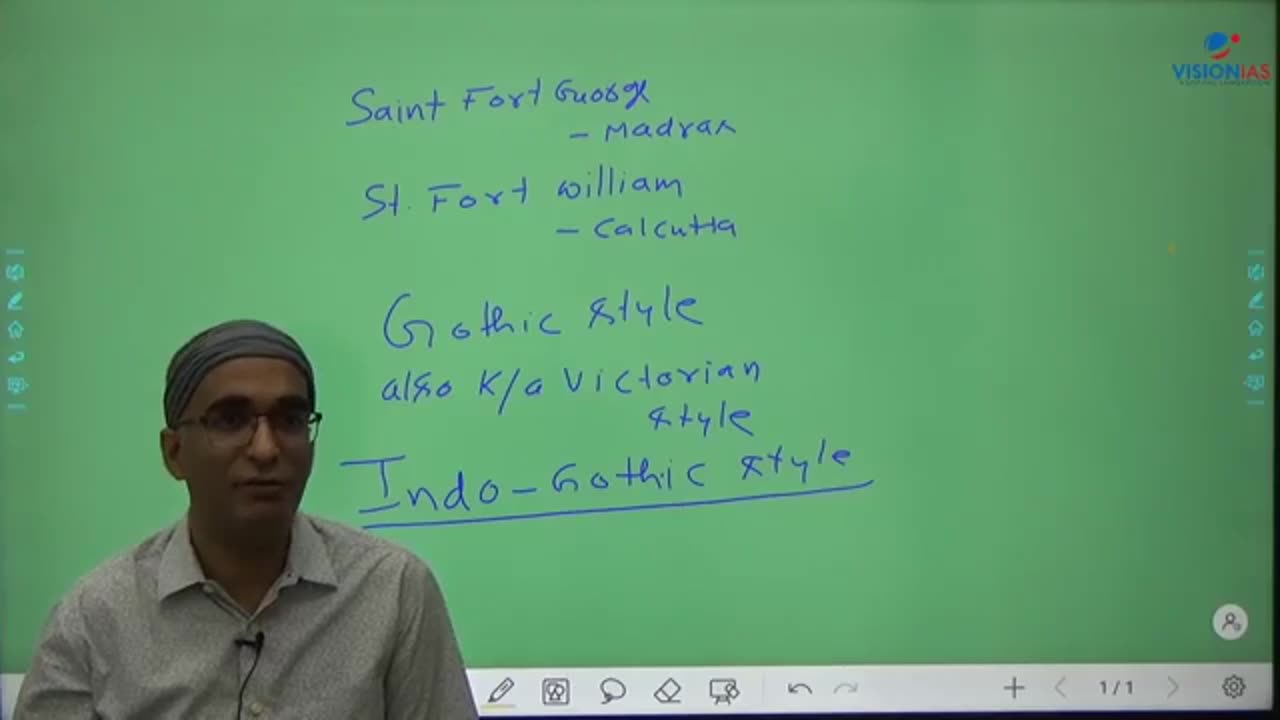 Saint Fort Guorge
- Madras
St. Fort William
- Calcutta
Gothic style
also k/a Victorian
style
Indo-Gothic style
VISIONIAS
1/1